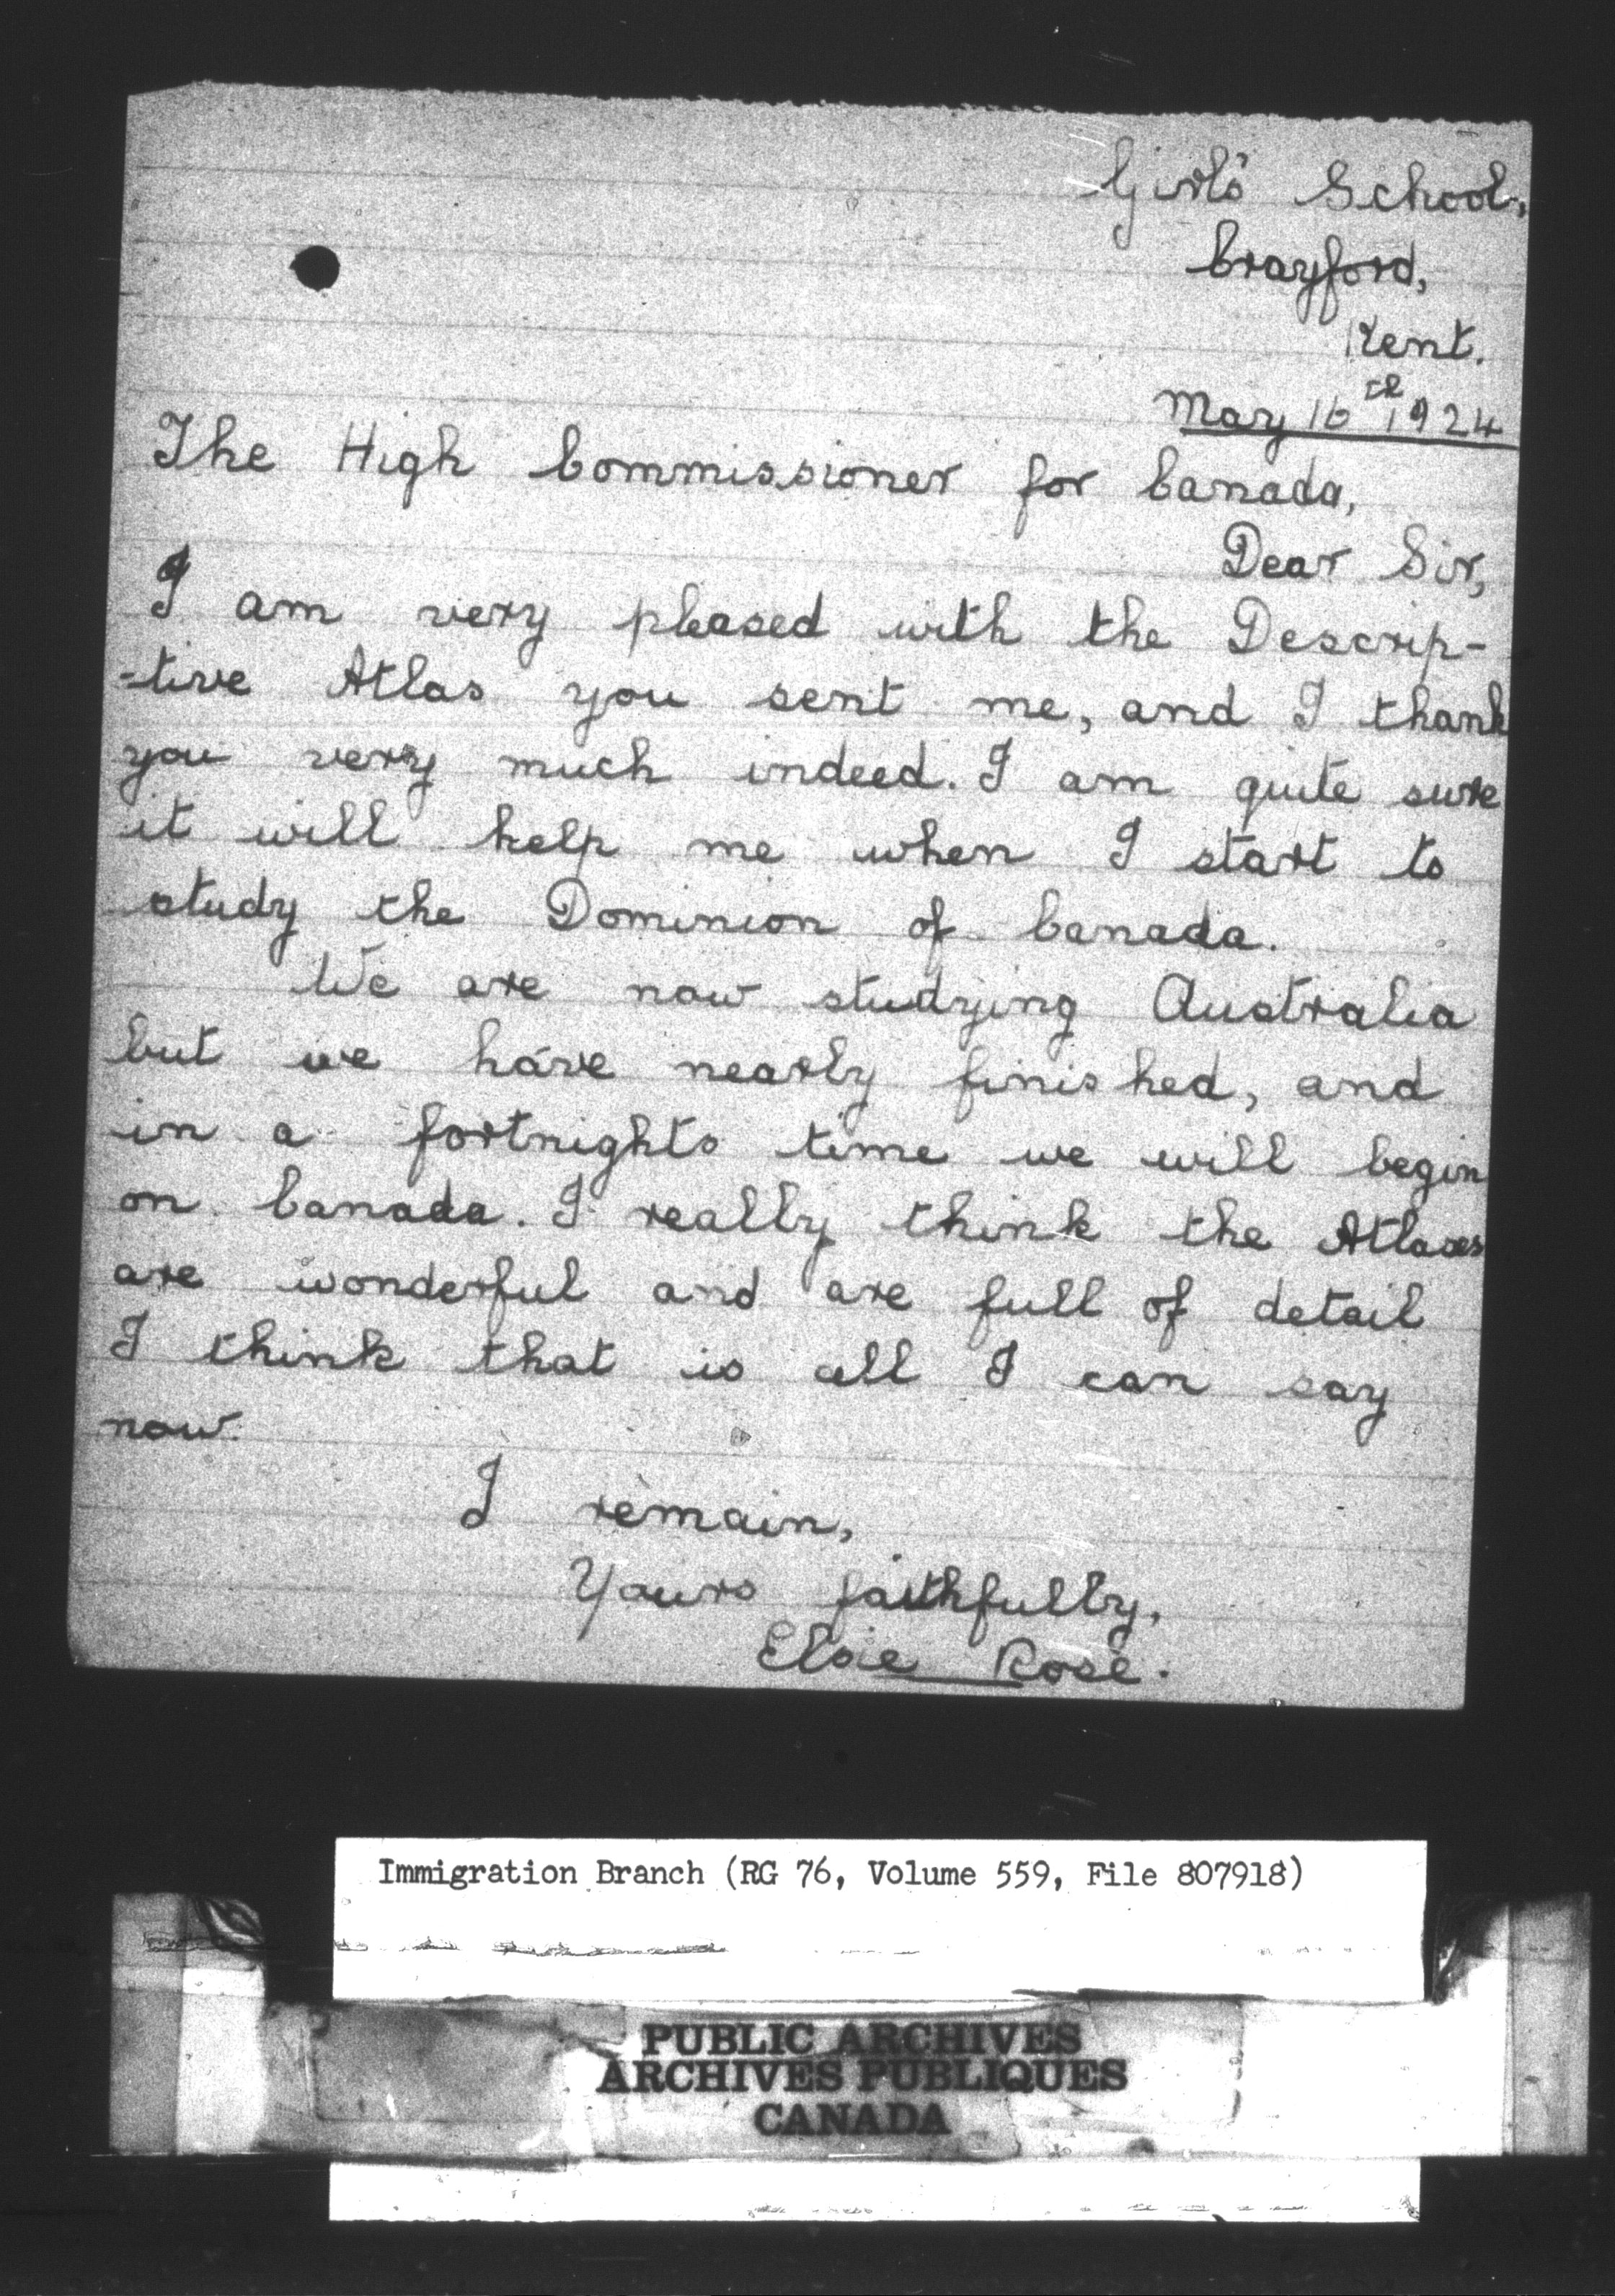 Girls' School,
Crayford,
Kent.
May 16th 1924
The High Commissioner for Canada,
Dear Sir,
I am very pleased with the Descrip-
-tive Atlas you sent me, and I thank
you very much indeed. I am quite sure
it will help me when I start to
study the Dominion of Canada.
We are now studying Australia
but we have nearly finished, and
in a fortnights time we will begin
on Canada. I really think the Atlases
are wonderful and are full of detail
I think that is all I can say
now.
I remain,
Yours faithfully,
Elsie Rose.
Immigration Branch (RG 76, Volume 559, File 807918)
PUBLIC ARCHIVES
ARCHIVES PUBLIQUES
CANADA